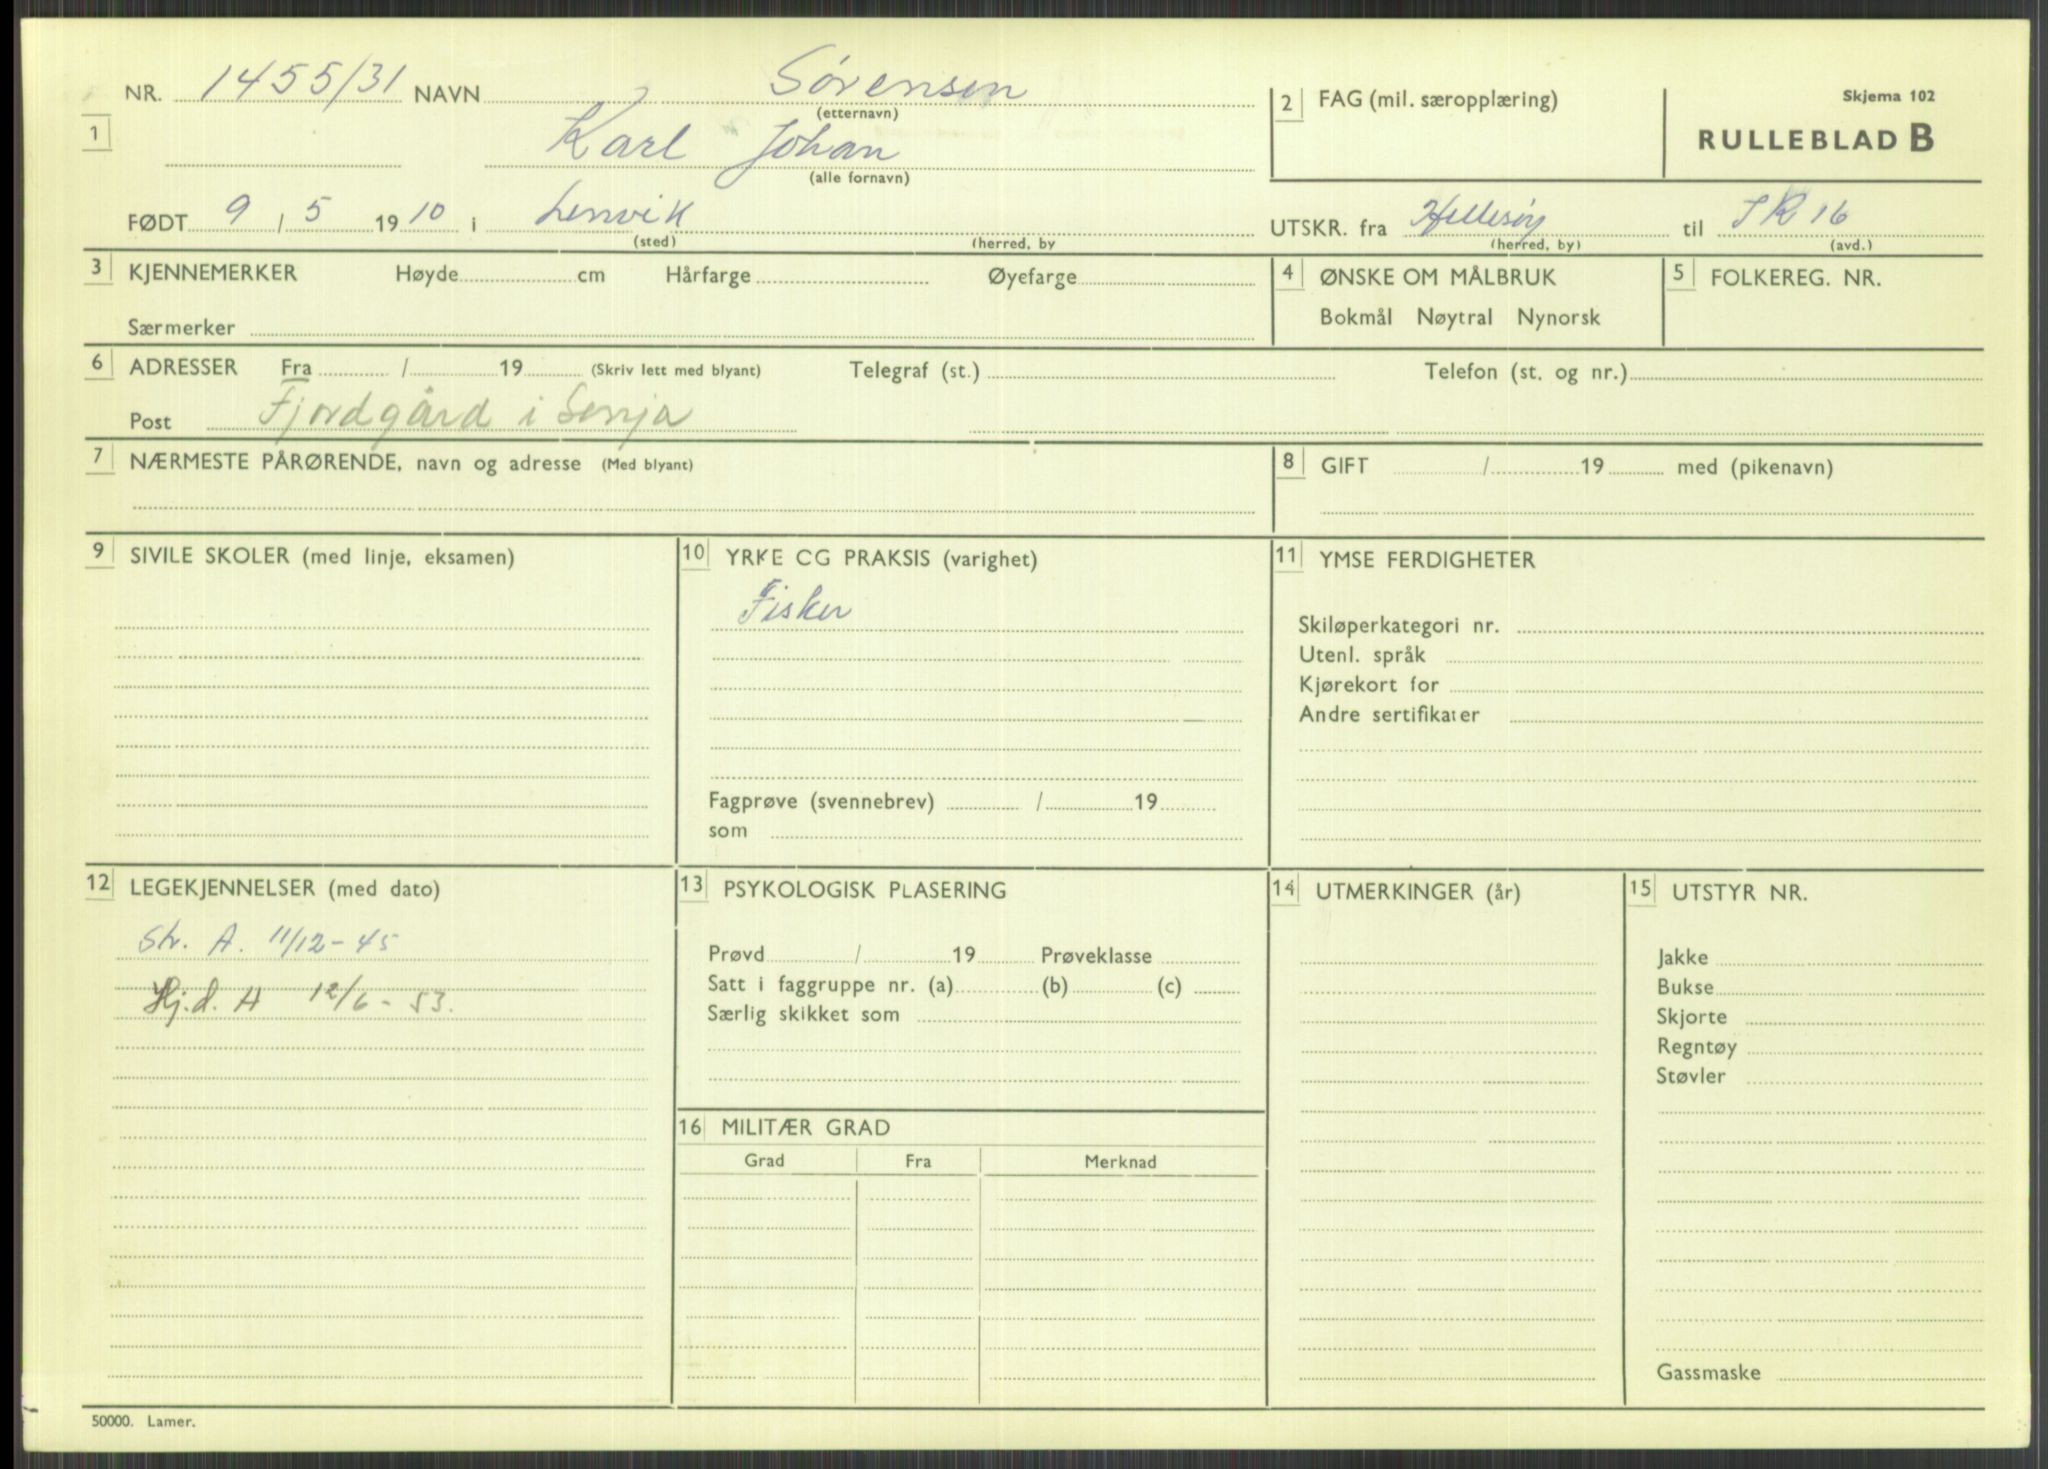 Skjema 102
NR. 1455/31 NAVN Sørensen
(etternavn)
1
Karl Johan
(alle fornavn)
FØDT 9 / 5 1910 i Lenvik
(sted) (herred, by
2 FAG (mil. særopplæring)
RULLEBLAD B
UTSKR. fra Hillesøy til IR 16
(herred, by) (avd.)
3 KJENNEMERKER Høyde cm Hårfarge Øyefarge
Særmerker
4 ØNSKE OM MÅLBRUK
Bokmål Nøytral Nynorsk
5 FOLKEREG. NR.
6 ADRESSER Fra / 19 (Skriv lett med blyant) Telegraf (st.) Telefon (st. og nr.)
Post Fjordgård i Senja
7 NÆRMESTE PÅRØRENDE, navn og adresse (Med blyant)
8 GIFT / 19 med (pikenavn)
9 SIVILE SKOLER (med linje, eksamen)
10 YRKE CG PRAKSIS (varighet)
Fisker
Fagprøve (svennebrev) / 19
som
11 YMSE FERDIGHETER
Skiløperkategori nr.
Utenl. språk
Kjørekort for
Andre sertifikater
12 LEGEKJENNELSER (med dato)
Str. A. 11/12-45
Hj.d. A 12/6-53.
13 PSYKOLOGISK PLASERING
Prøvd / 19 Prøveklasse
Satt i faggruppe nr. (a) (b) (c)
Særlig skikket som
16 MILITÆR GRAD
Grad Fra Merknad
14 UTMERKINGER (år)
15 UTSTYR NR.
Jakke
Bukse
Skjorte
Regntøy
Støvler
Gassmaske
50000. Lamer.